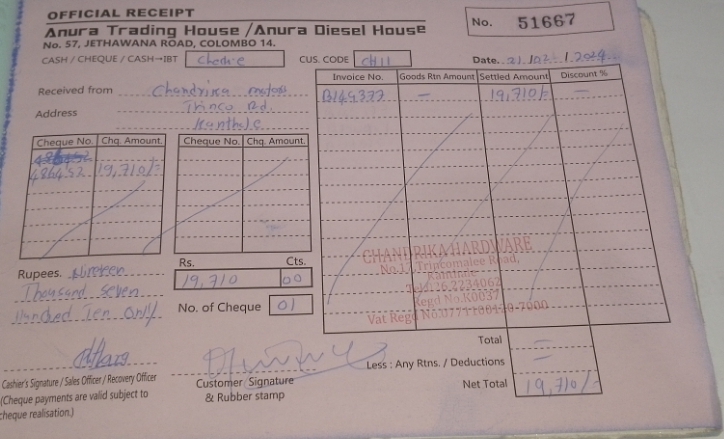 OFFICIAL RECEIPT
No. 51667
Anura Trading House / Anura Diesel House
No. 57, JETHAWANA ROAD, COLOMBO 14.
CASH / CHEQUE / CASH→IBT Cheque CUS. CODE CH11 Date. 21/02/2024
Received from Chandrika motors
Address Trinco Rd.
Kanthale
Invoice No. Goods Rtn Amount Settled Amount Discount %
B149377 — 19,710/- —
Cheque No. Chq. Amount. Cheque No. Chq. Amount.
486452 19,710/-
Rupees. Nineteen
Thousand Seven
Hundred Ten Only
Rs. Cts.
19,710 00
No. of Cheque 01
CHANDRIKA HARDWARE
No.17, Trincomalee Road,
Kantale
Tel:026 2234062
Regd No.K0037
Total —
Less : Any Rtns. / Deductions —
Net Total 19,710/-
Cashier's Signature / Sales Officer / Recovery Officer
(Cheque payments are valid subject to
cheque realisation.)
Customer Signature
& Rubber stamp